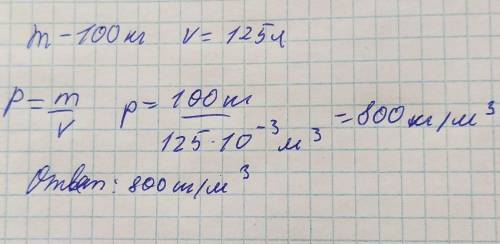 m - 100 кг V = 125 л
P = m/V P = 100 кг / 125 · 10⁻³ м³ = 800 кг/м³
Ответ: 800 кг/м³